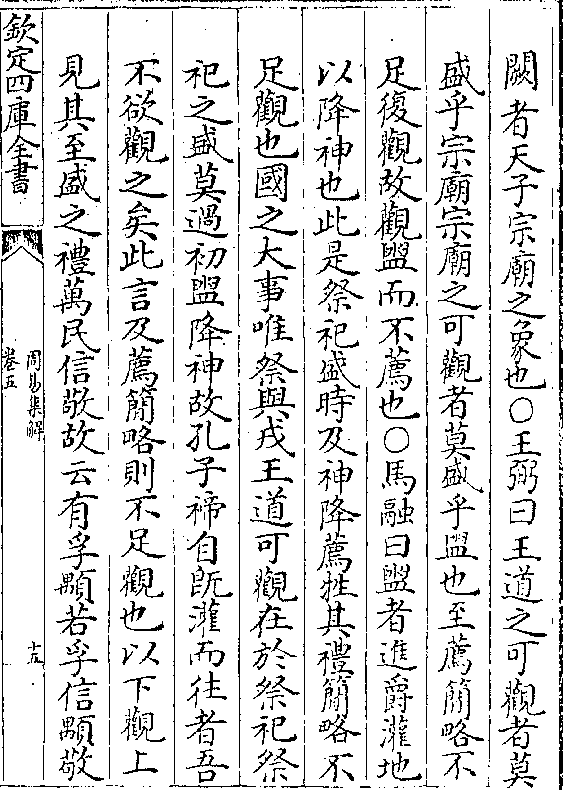 闕者天子宗廟之象也○王弼曰王道之可觀者莫
盛乎宗廟宗廟之可觀者莫盛乎盥也至薦簡略不
足復觀故觀盥而不薦也○馬融曰盥者進爵灌地
以降神也此是祭祀盛時及神降薦牲其禮簡略不
足觀也國之大事唯祭與戎王道可觀在於祭祀祭
祀之盛莫過初盥降神故孔子禘自旣灌而往者吾
不欲觀之矣此言及薦簡略則不足觀也以下觀上
見其至盛之禮萬民信敬故云有孚顒若孚信顒敬
欽定四庫全書
周易集解
卷五
十五